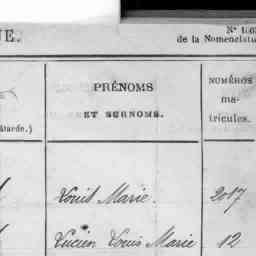 NE.
N° 1603
de la Nomenclatu
PRÉNOMS
ET SURNOMS.
NUMÉROS
ma-
tricules.
âtarde.)
Louis Marie. 2017
Lucien Louis Marie 12